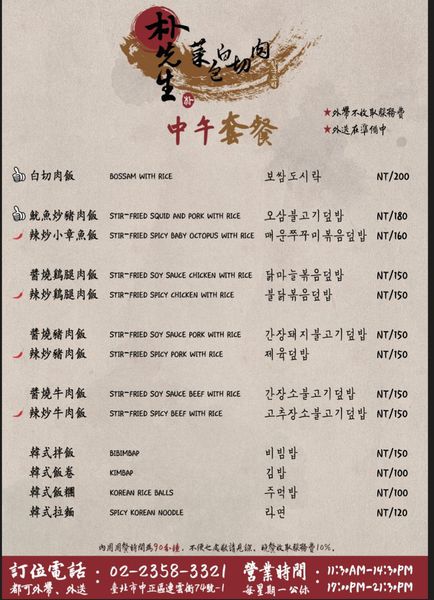 朴先生
菜包白切肉
中午套餐
★外帶不收取服務費
★外送在準備中
白切肉飯 BOSSAM WITH RICE 보쌈도시락 NT/200
魷魚炒豬肉飯 STIR-FRIED SQUID AND PORK WITH RICE 오삼불고기덮밥 NT/180
辣炒小章魚飯 STIR-FRIED SPICY BABY OCTOPUS WITH RICE 매운쭈꾸미볶음덮밥 NT/160
醬燒鷄腿肉飯 STIR-FRIED SOY SAUCE CHICKEN WITH RICE 닭마늘볶음덮밥 NT/150
辣炒鷄腿肉飯 STIR-FRIED SPICY CHICKEN WITH RICE 불닭볶음덮밥 NT/150
醬燒豬肉飯 STIR-FRIED SOY SAUCE PORK WITH RICE 간장돼지불고기덮밥 NT/150
辣炒豬肉飯 STIR-FRIED SPICY PORK WITH RICE 제육덮밥 NT/150
醬燒牛肉飯 STIR-FRIED SOY SAUCE BEEF WITH RICE 간장소불고기덮밥 NT/150
辣炒牛肉飯 STIR-FRIED SPICY BEEF WITH RICE 고추장소불고기덮밥 NT/150
韓式拌飯 BIBIMBAP 비빔밥 NT/150
韓式飯卷 KIMBAP 김밥 NT/100
韓式飯糰 KOREAN RICE BALLS 주먹밥 NT/100
韓式拉麵 SPICY KOREAN NOODLE 라면 NT/120
內用用餐時間為90分鐘,不便之處敬請見諒,晚餐收取服務費10%。
訂位電話 : 02-2358-3321 營業時間 : 11:30AM-14:30PM
都可外帶、外送 臺北市中正區連雲街74號-1 每星期一公休 17:00PM-21:30PM